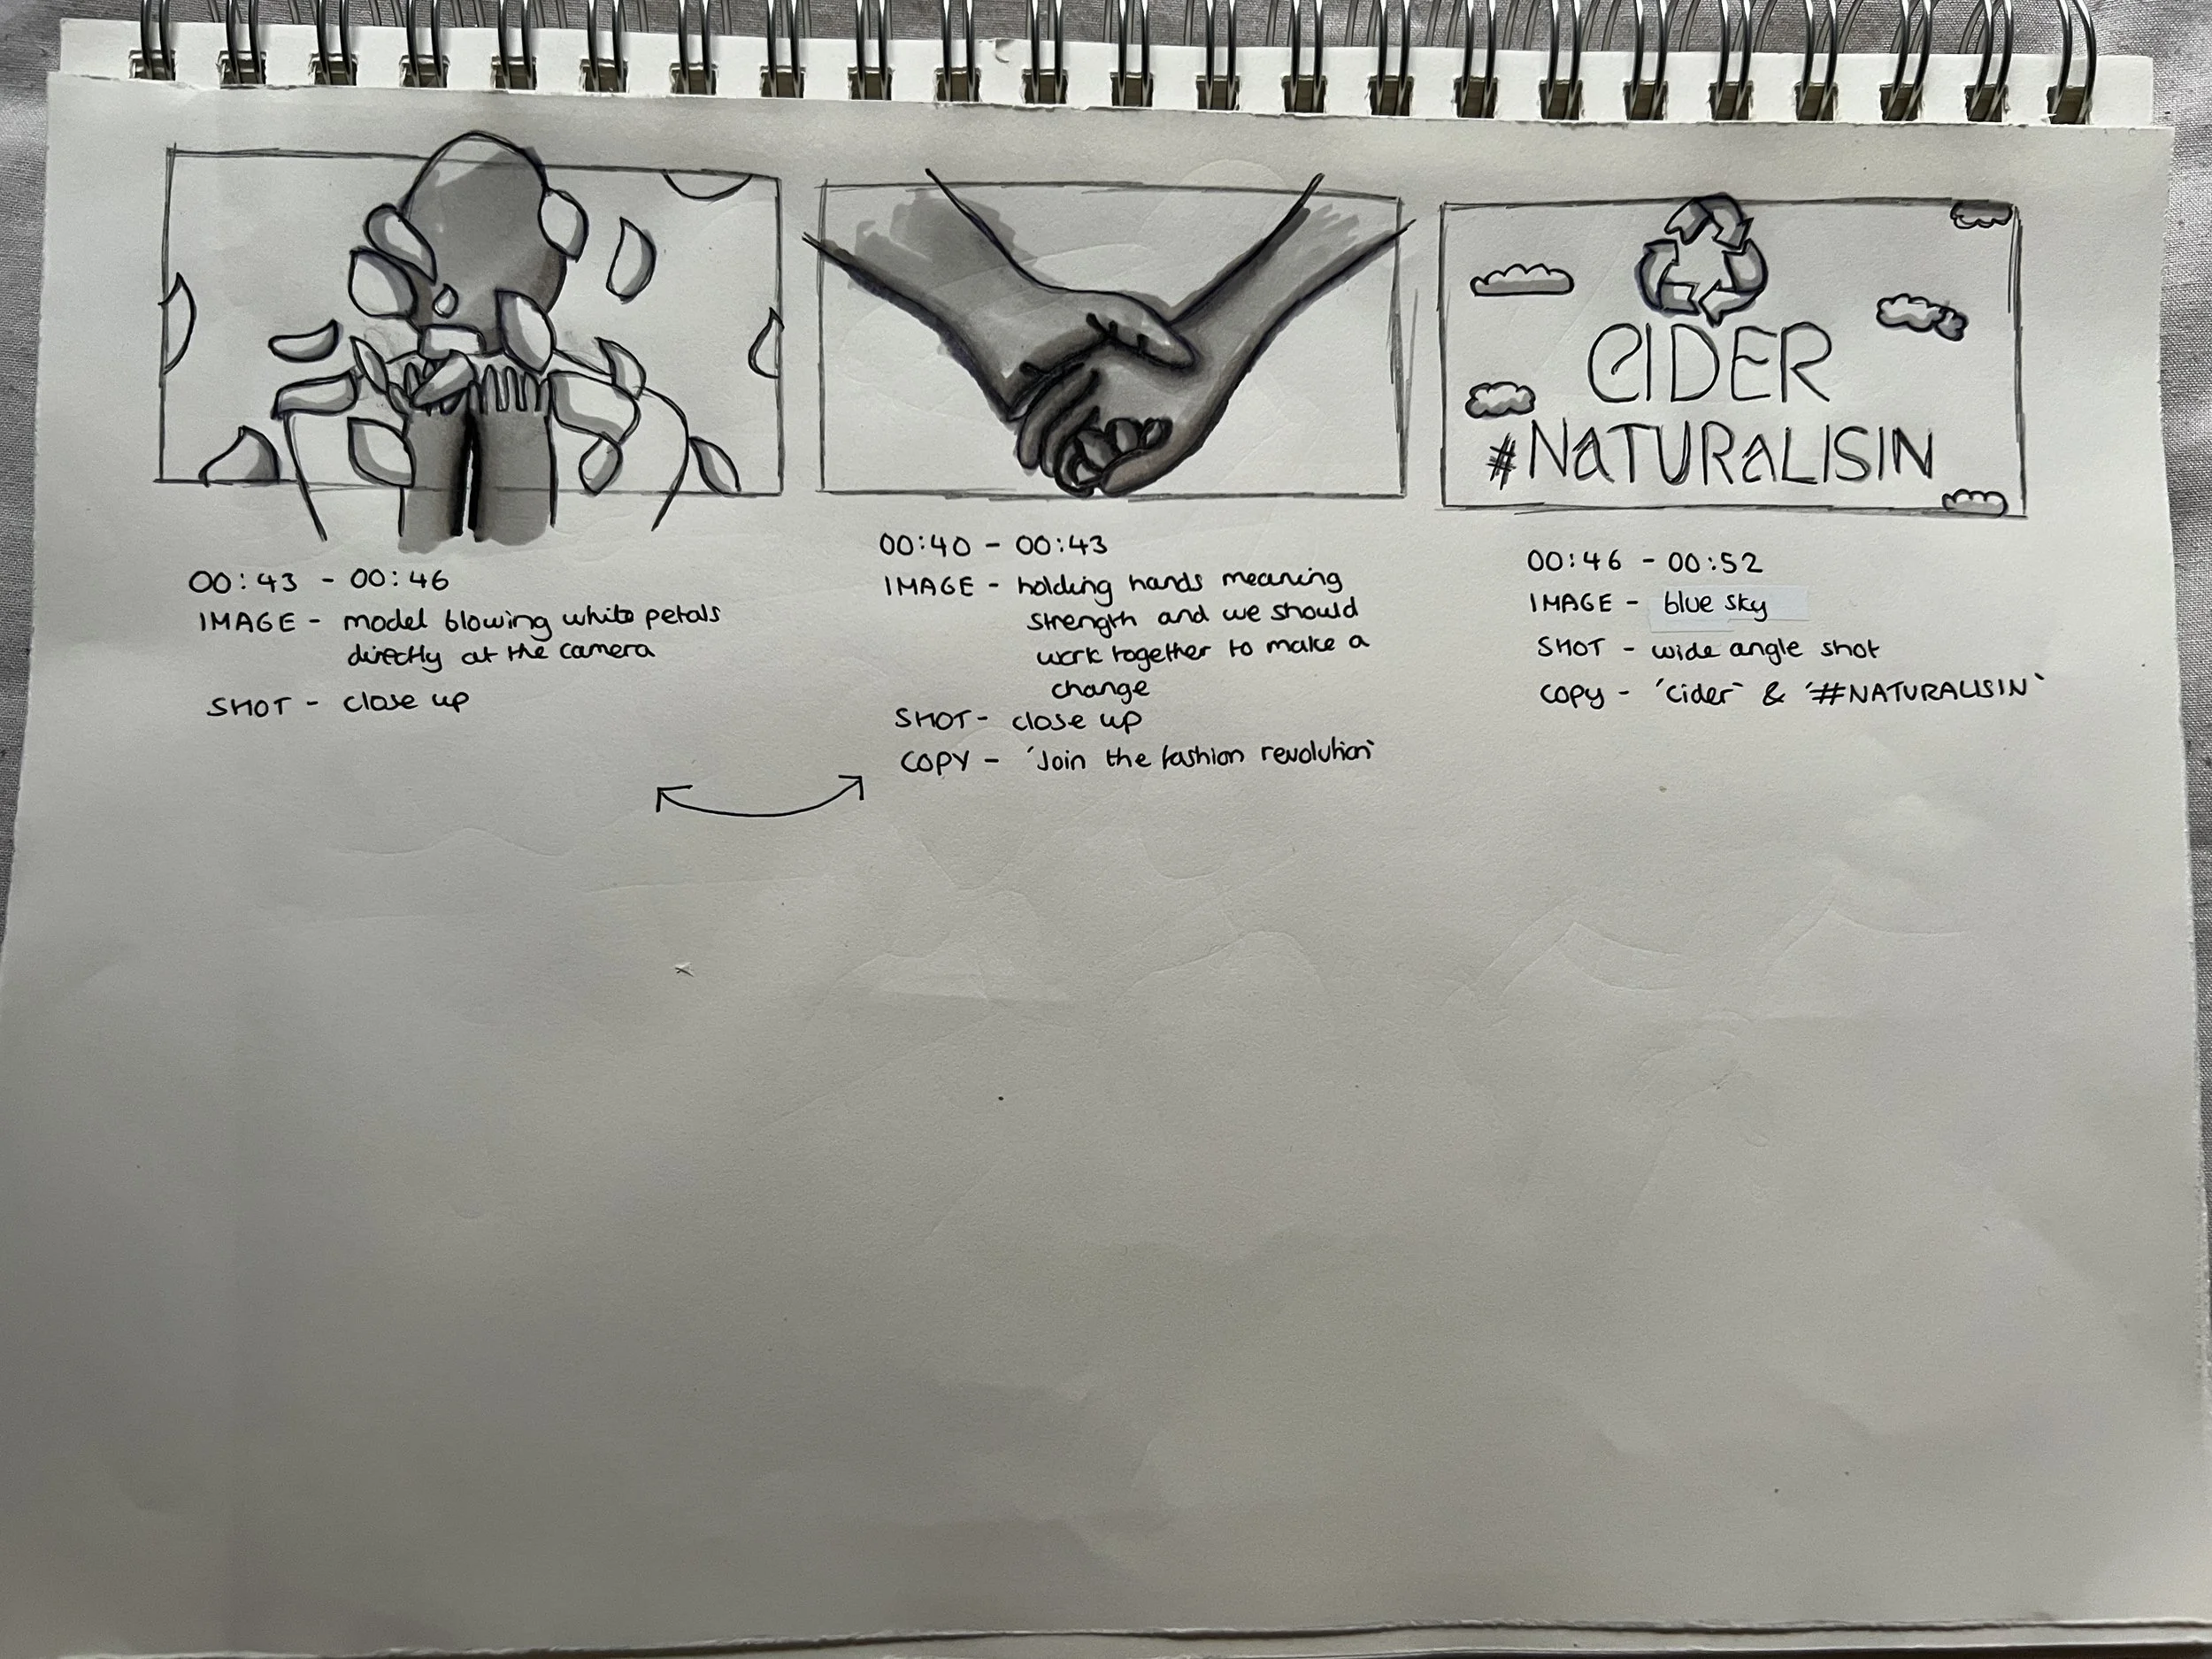 00:43 - 00:46
IMAGE - model blowing white petals
directly at the camera
SHOT - close up
00:40 - 00:43
IMAGE - holding hands meaning
strength and we should
work together to make a
change
SHOT - close up
COPY - 'Join the fashion revolution'
CIDER
#NATURALISIN
00:46 - 00:52
IMAGE - blue sky
SHOT - wide angle shot
COPY - 'cider' & '#NATURALISIN'